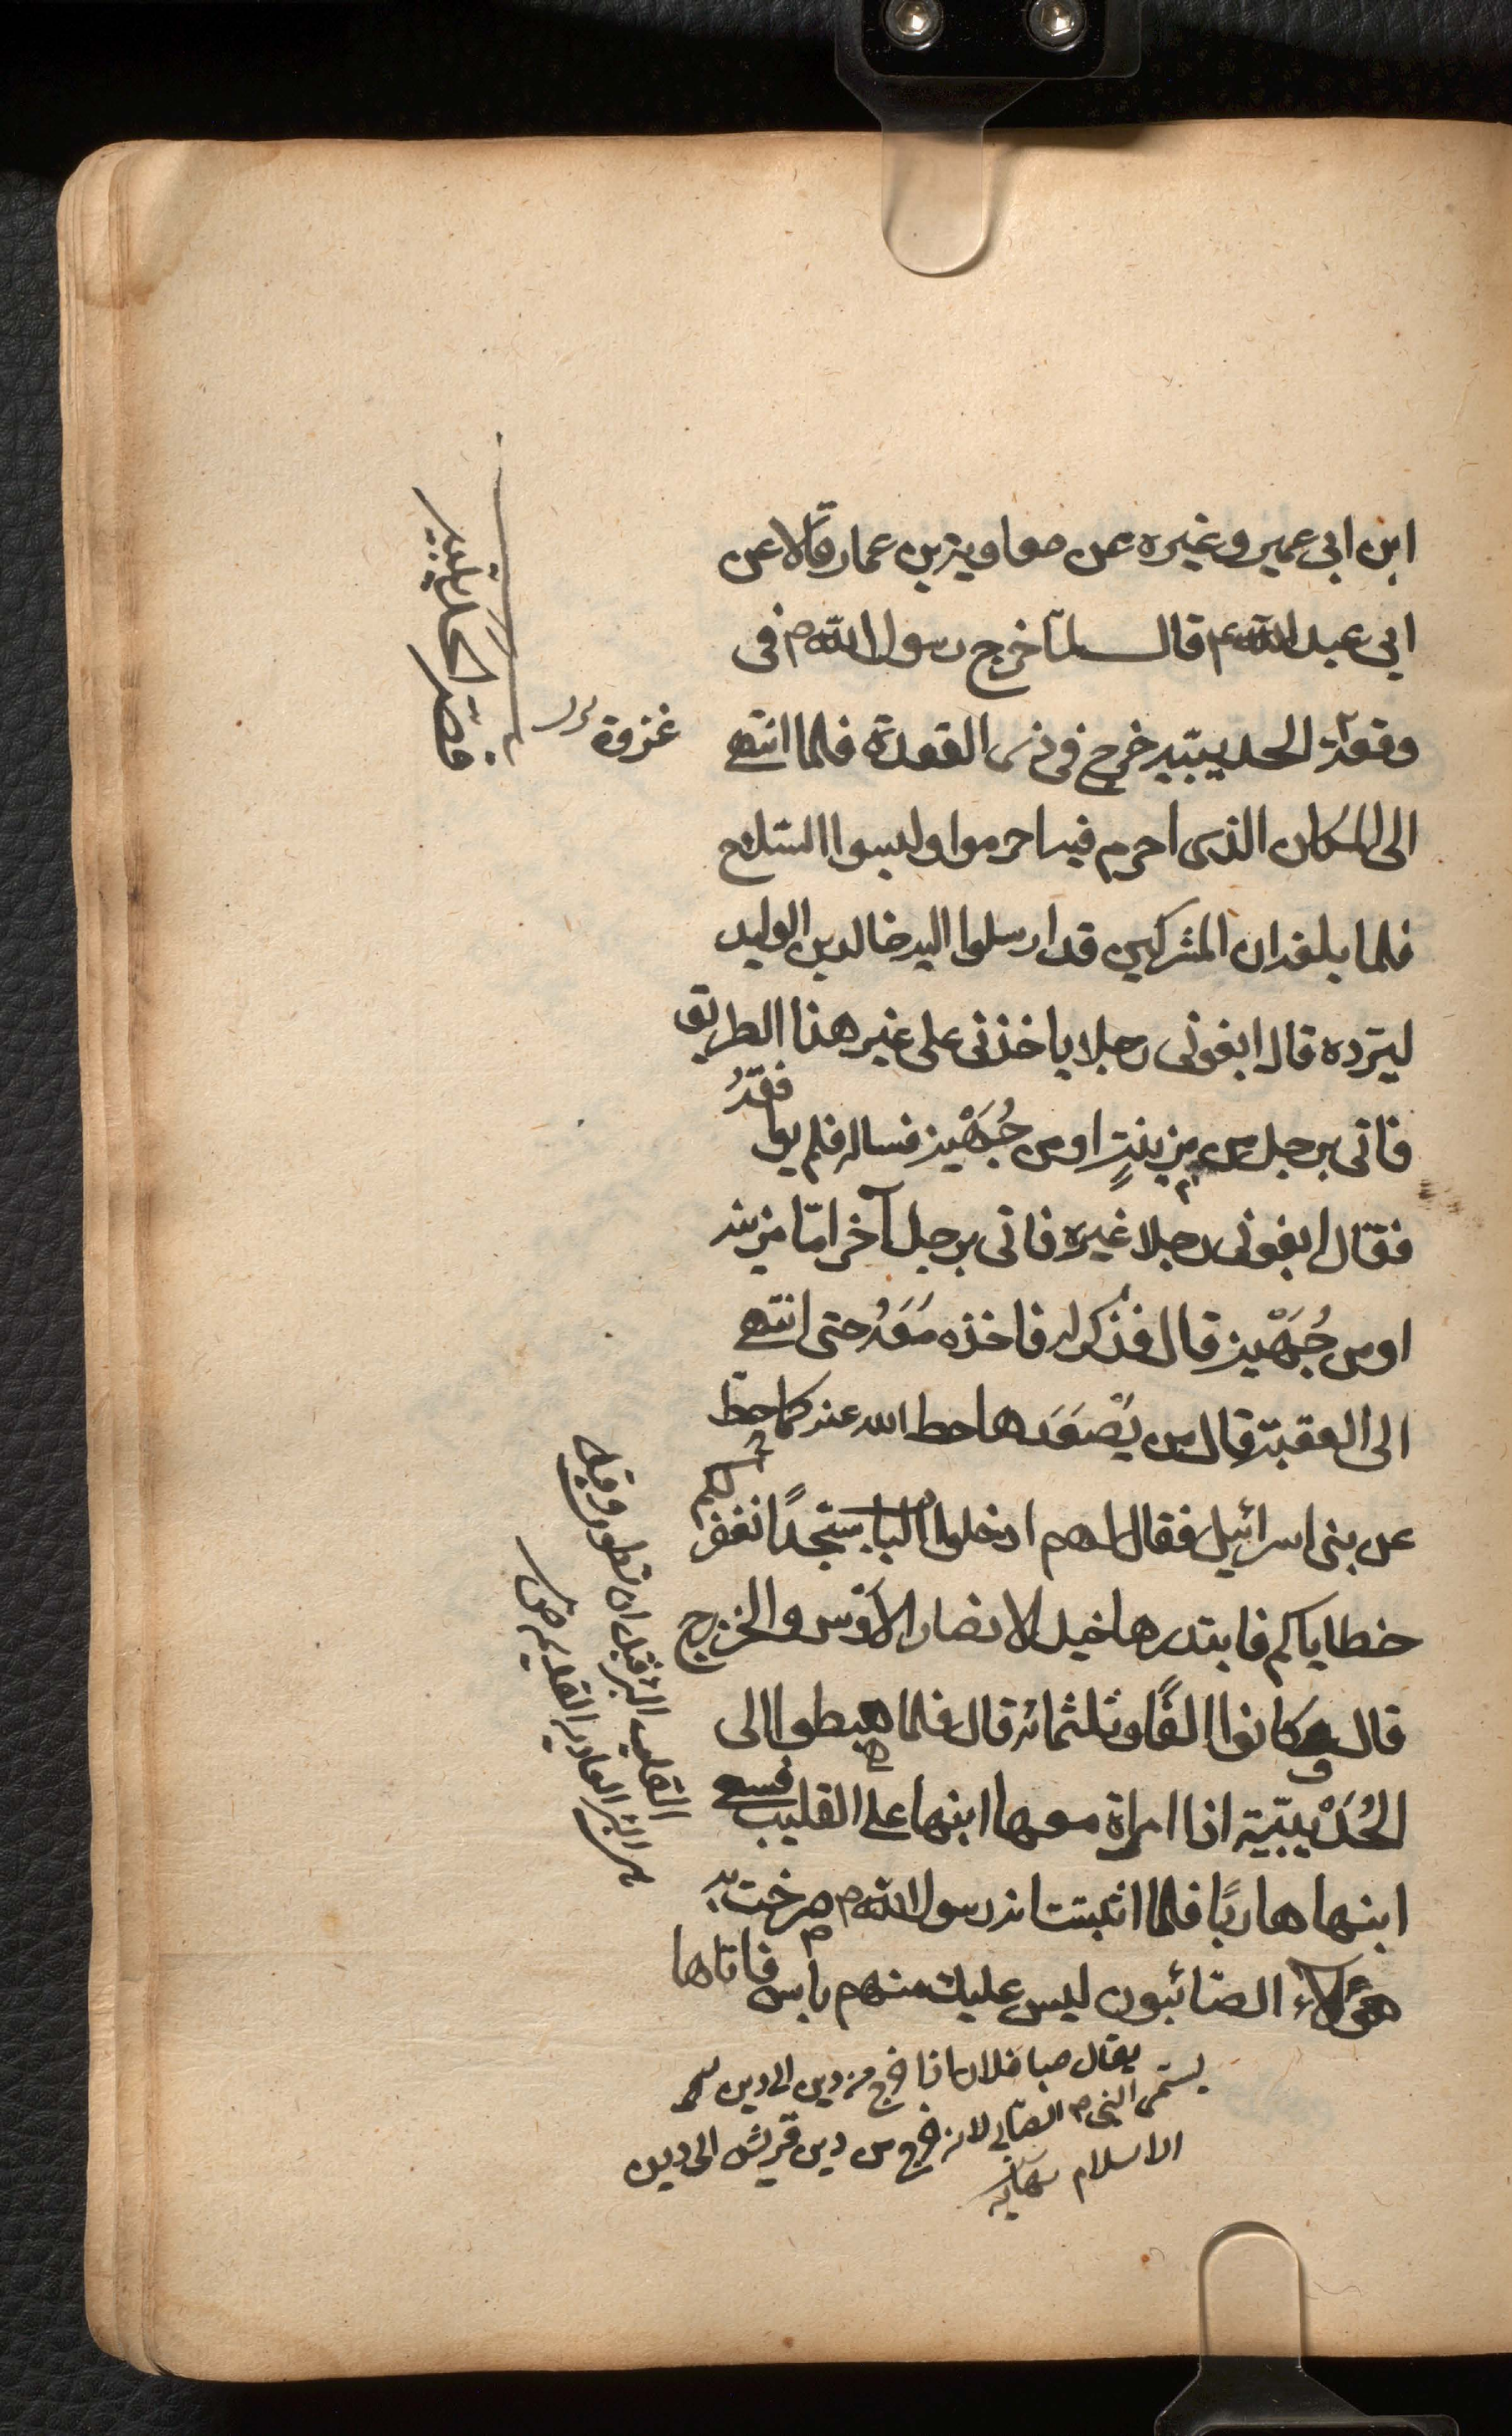 ابن ابى عمير وغيره عن معاوية بن عمار قالا عن
ابى عبد الله ع قال لمّا خرج رسول الله ص فى
وقعة الحديبيّة خرج فى ذى القعدة فلما انتهى
غزوة
الى المكان الذى احرم فيه احرموا ولبسوا السّلاح
فلما بلغه ان المشركين قد ارسلوا اليه خالد بن الوليد
ليردّه قال ابغونى رجلا ياخذنى على غير هذا الطريق
فاتى برجل من مزينةٍ او من جُهَيْنة فساله فلم يوافقهُ
فقال ابغونى رجلا غيره فاتى برجل آخر امّا مزينة
او من جُهَيْنة قال فذكر له فاخذه مَعَهُ حتى انتهى
الى العقبة قال من يَصْعَدها حط الله عنه كما حطّ
عن بنى اسرائيل فقال لهم ادخلوا الباب سجّدًا نغفر لكم
خطاياكم فابتدرها خيل الانصار الاَوْس والخزرج
قال وكانوا الفًا وثلثمائة قال فلما هبطوا الى
الحُدَيْبيّة اذا امراة معها ابنها على القليب فسعى
ابنها هاربًا فلما اثبتت انه رسول الله ص صرخت به
هؤلاء الصّائبون ليس عليك منهم باس فاتاها
يقال صبا فلان اذا خرج من دين الى دين
يسمّى النبى ص الصّابى لانه خرج من دين قريش الى دين
الاسلام نهاية
قصة الحديبية
القليب البئر قبل ان تطوى وقيل
هى البئر العادية القديمة